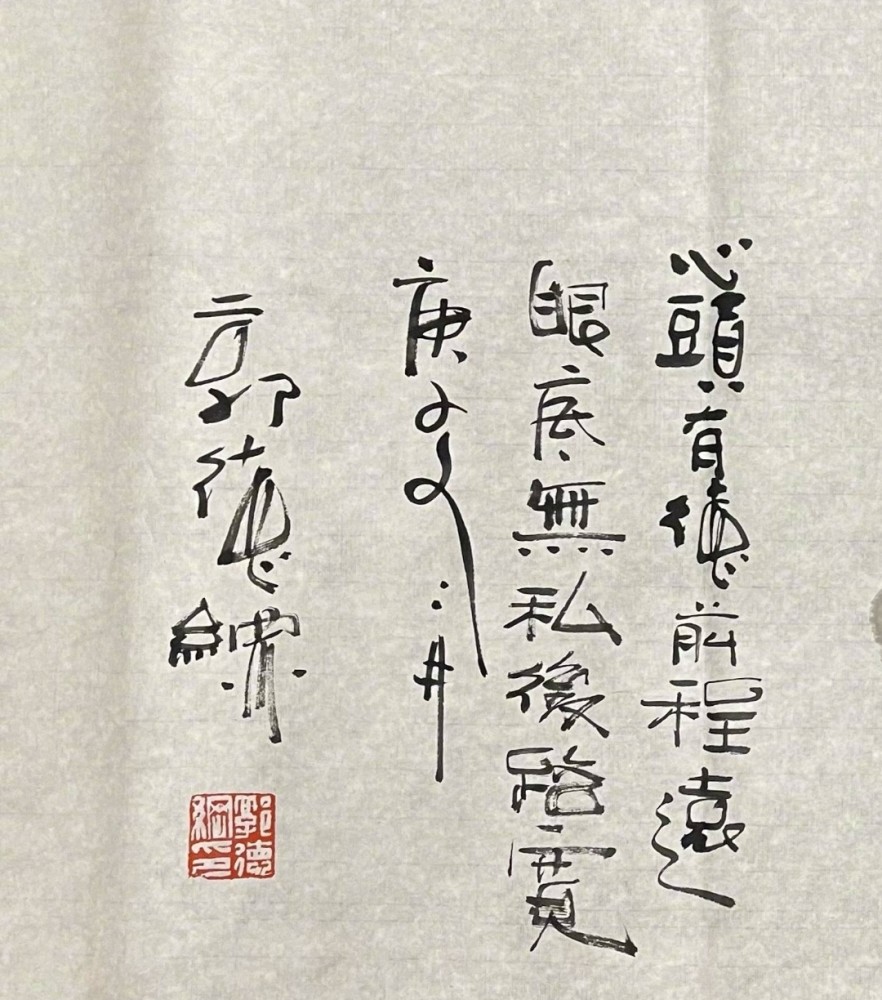 心頭有德前程遠
眼底無私後路寬
庚子
郭德綱
郭德綱印